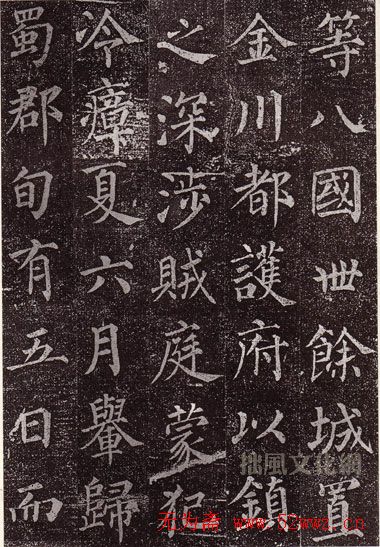 等八國卌餘城置
金川都護府以鎮
之深涉賊庭蒙犯
冷瘴夏六月轝歸
蜀郡旬有五日而
拙風文化網
无为斋 www.52wwz.cn